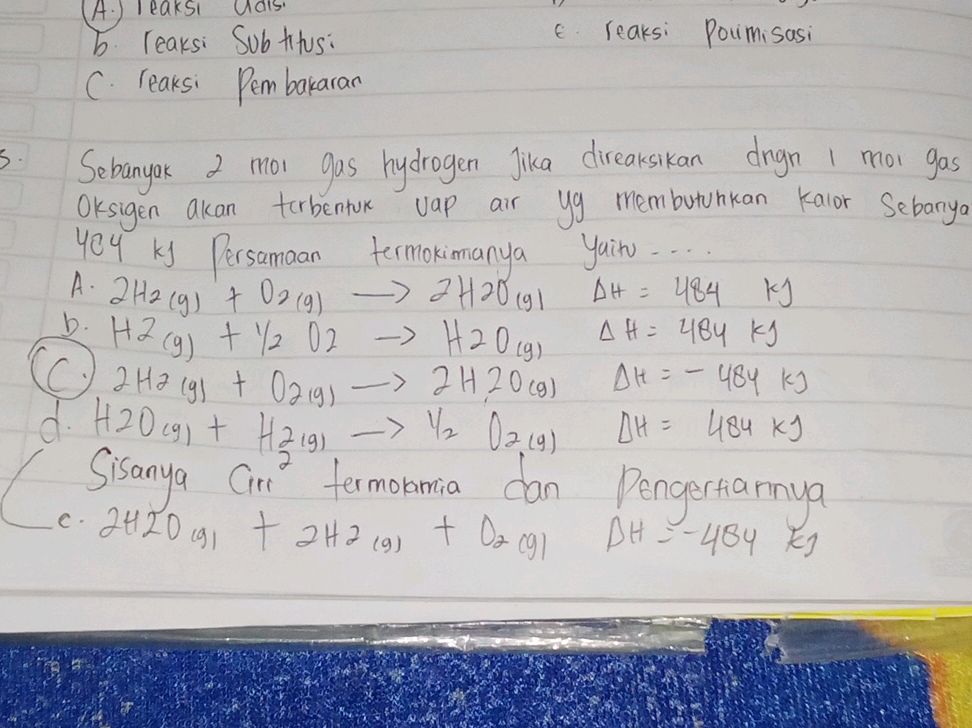 A. reaksi adisi
b. reaksi Subtitusi
e. reaksi Poumisasi
C. reaksi Pembakaran
3. Sebanyak 2 mol gas hydrogen Jika direaksikan dngn 1 mol gas
Oksigen akan terbentuk uap air yg membutuhkan kalor Sebanya
484 kJ Persamaan termokimianya yaitu ....
A. 2H2 (g) + O2 (g) → 2H2O (g) ΔH = 484 kJ
b. H2 (g) + 1/2 O2 → H2O (g) ΔH = 484 kJ
C. 2H2 (g) + O2 (g) → 2H2O (g) ΔH = - 484 kJ
d. H2O (g) + H2 (g) → 1/2 O2 (g) ΔH = 484 kJ
Sisanya Ciri² termokimia dan Pengertiannya
e. 2H2O (g) + 2H2 (g) + O2 (g) ΔH = -484 kJ